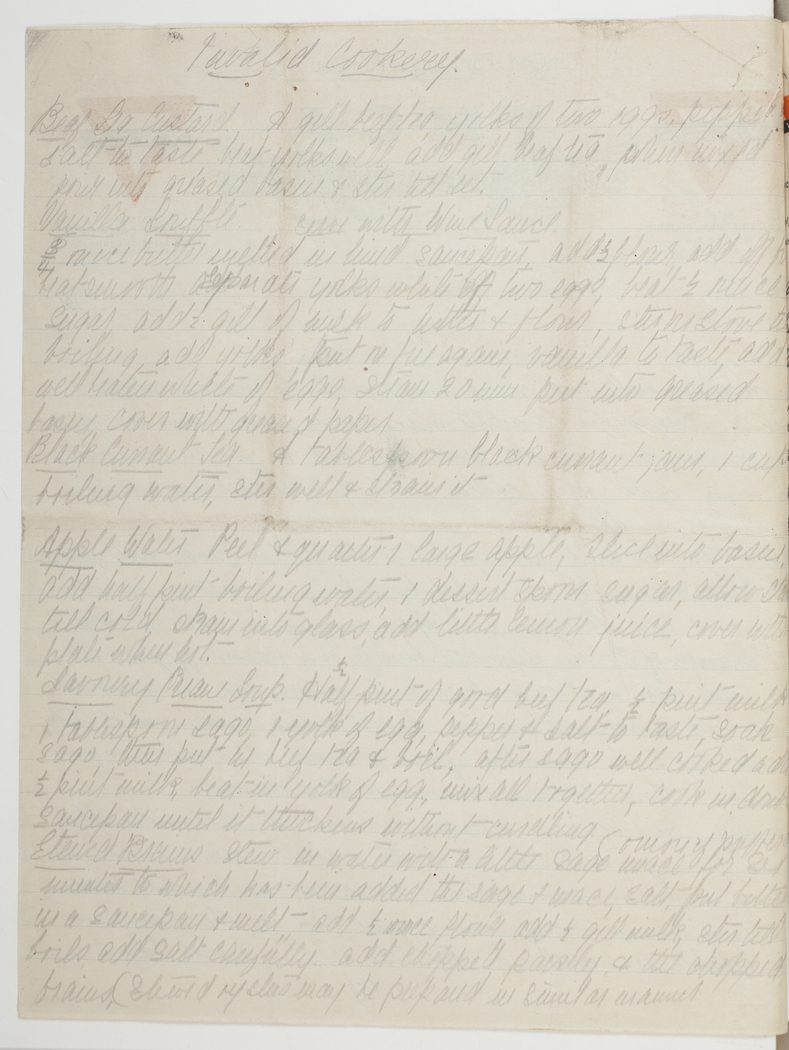 Invalid Cookery.
Beef Tea Custard. 1 gill beef tea yolks of two eggs, pepper
salt to taste beat yolks well add gill beef tea, when mixed
pour into greased basin & stir till set.
Vanilla Souffle cover with Wine Sauce
3/4 ounce butter melted in lined saucepan, add 1/2 flour, add
beat smooth separate yolks white of two eggs, beat 1/2 ounce
sugar, add 1/2 gill of milk to butter & flour, stir on stove
boiling, add yolks, put on fire again, vanilla to taste, add
well beaten whites of eggs, steam 20 min put into greased
basin, cover with greased paper
Black Currant Tea 1 tablespoon black currant jam, 1 cup
boiling water, stir well & strain it
Apple Water Peel & quarter 1 large apple, slice into basin,
add half pint boiling water, 1 dessert spoon sugar, allow
till cold strain into glass, add little lemon juice, cover with
plate when hot.
Savoury Cream Soup. Half pint of good beef tea, 1/2 pint milk
1 tablespoon sago, 1 yolk of egg, pepper & salt to taste, soak
sago then put in beef tea & boil, after sago well cooked add
1/2 pint milk, beat in yolk of egg, mix all together, cook in
saucepan until it thickens without curdling
Stewed Brains stew in water with a little sage mace for
minutes to which has been added the sage & mace, salt, put butter
in a saucepan & melt - add 1/2 ounce flour add 1/2 gill milk, stir till
boils add salt carefully add chopped parsley & the chopped
brains (Stewed oysters may be prepared in similar manner